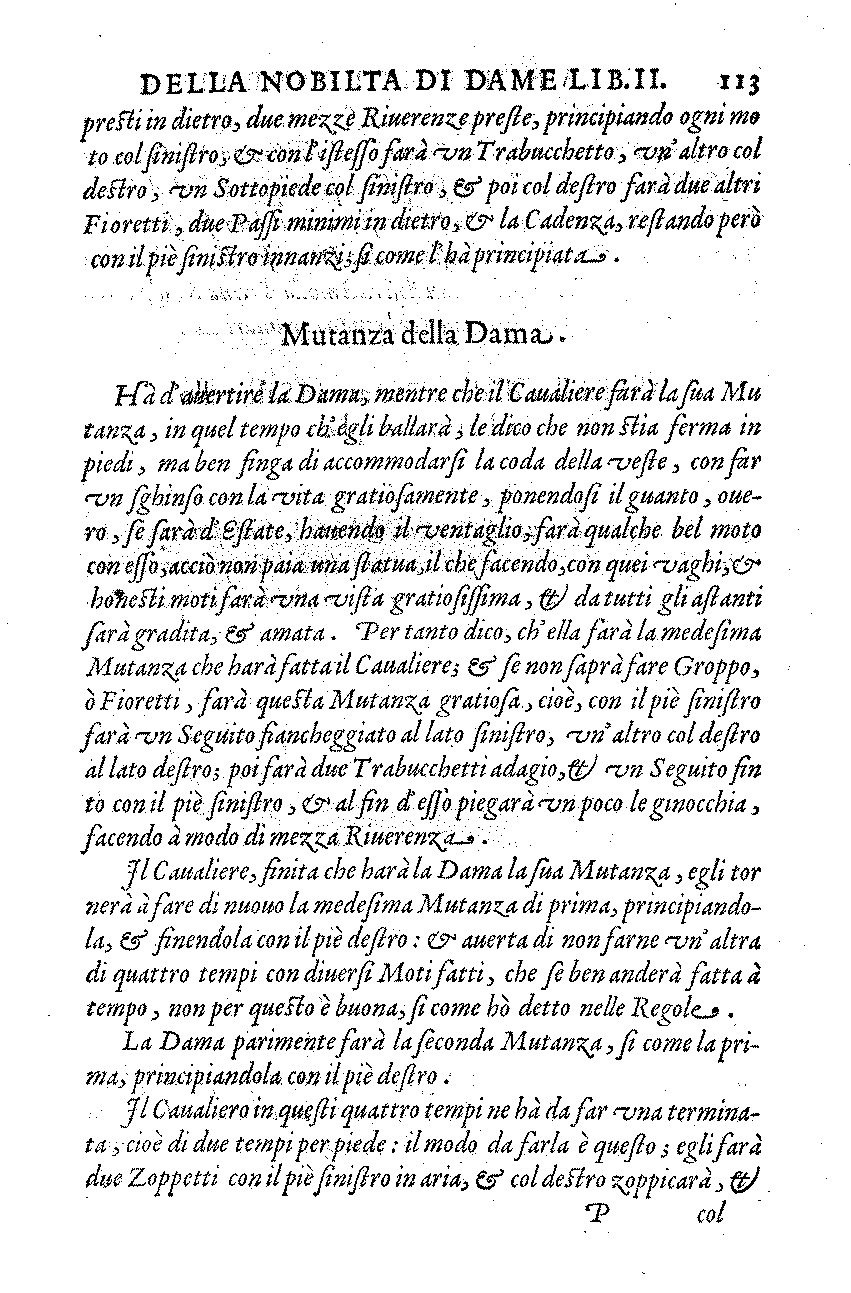 DELLA NOBILTA DI DAME LIB. II. 113
presti in dietro, due mezze Riuerenze preste, principiando ogni mo
to col sinistro; & con l'istesso farà vn Trabucchetto, vn'altro col
destro, vn Sottopiede col sinistro, & poi col destro farà due altri
Fioretti, due Passi minimi in dietro, & la Cadenza, restando però
con il piè sinistro innanzi, si come l'hà principiata.
Mutanza della Dama.
Hà d'auertire la Dama, mentre che il Caualiere farà la sua Mu
tanza, in quel tempo ch'egli ballarà, le dico che non stia ferma in
piedi, ma ben finga di accommodarsi la coda della veste, con far
vn sghinso con la vita gratiosamente, ponendosi il guanto, oue-
ro, se sarà d'Estate, hauendo il ventaglio, farà qualche bel moto
con esso, acciò non paia una statua, il che facendo, con quei vaghi, &
honesti moti farà vna vista gratiosissima, & da tutti gli astanti
sarà gradita, & amata. Per tanto dico, ch'ella farà la medesima
Mutanza che harà fatta il Caualiere; & se non saprà fare Groppo,
ò Fioretti, farà questa Mutanza gratiosa, cioè, con il piè sinistro
farà vn Seguito fiancheggiato al lato sinistro, vn'altro col destro
al lato destro; poi farà due Trabucchetti adagio, & vn Seguito fin
to con il piè sinistro, & al fin d'esso piegarà vn poco le ginocchia,
facendo à modo di mezza Riuerenza.
Il Caualiere, finita che harà la Dama la sua Mutanza, egli tor
nerà à fare di nuouo la medesima Mutanza di prima, principiando-
la, & finendola con il piè destro: & auerta di non farne vn'altra
di quattro tempi con diuersi Moti fatti, che se ben anderà fatta à
tempo, non per questo è buona, si come hò detto nelle Regole.
La Dama parimente farà la seconda Mutanza, si come la pri-
ma, principiandola con il piè destro.
Il Caualiero in questi quattro tempi ne hà da far vna termina-
ta, cioè di due tempi per piede: il modo da farla è questo; egli farà
due Zoppetti con il piè sinistro in aria, & col destro zoppicarà, &
P col